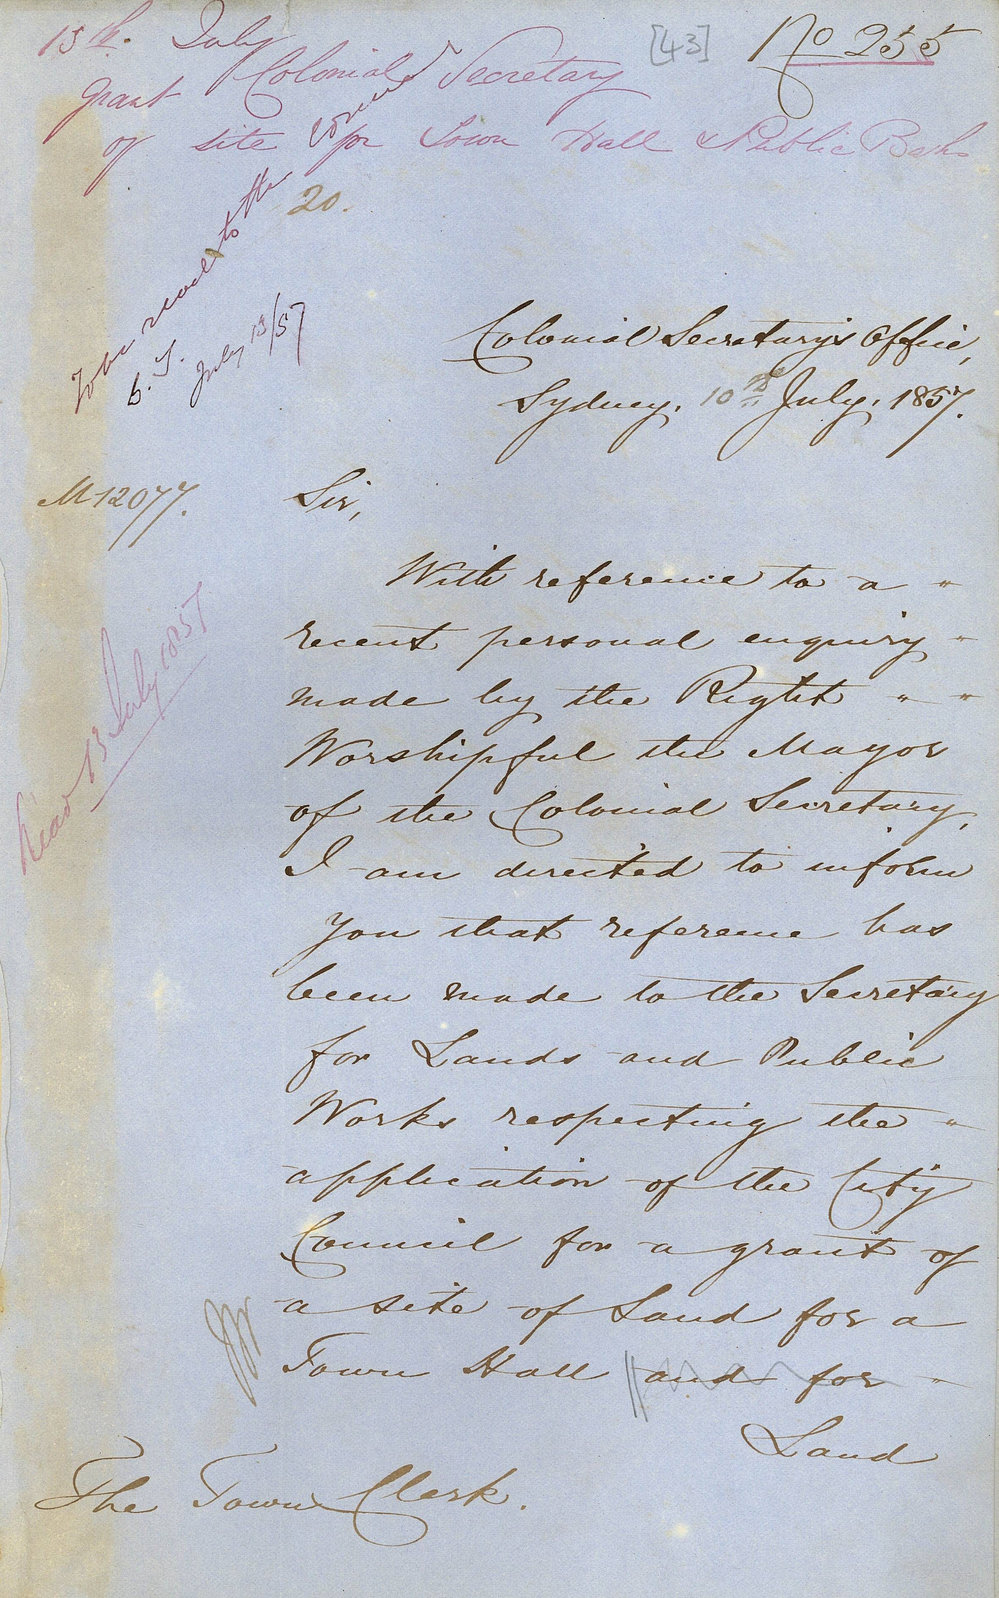 [43]
No 255
15th. July
Colonial Secretary
Grant
of site for Town Hall & Public Baths
20.
To be read to the Council
July 13/57
Colonial Secretary's Office,
Sydney, 10th July, 1857.
M 12077.
Sir,
With reference to a "
recent personal enquiry "
made by the Right " "
Worshipful the Mayor
of the Colonial Secretary,
I am directed to inform
you that reference has
been made to the Secretary
for Lands and Public
Works respecting the "
application of the City
Council for a grant of
a site of Land for a
Town Hall and for "
Land
Read 13 July 1857
The Town Clerk.